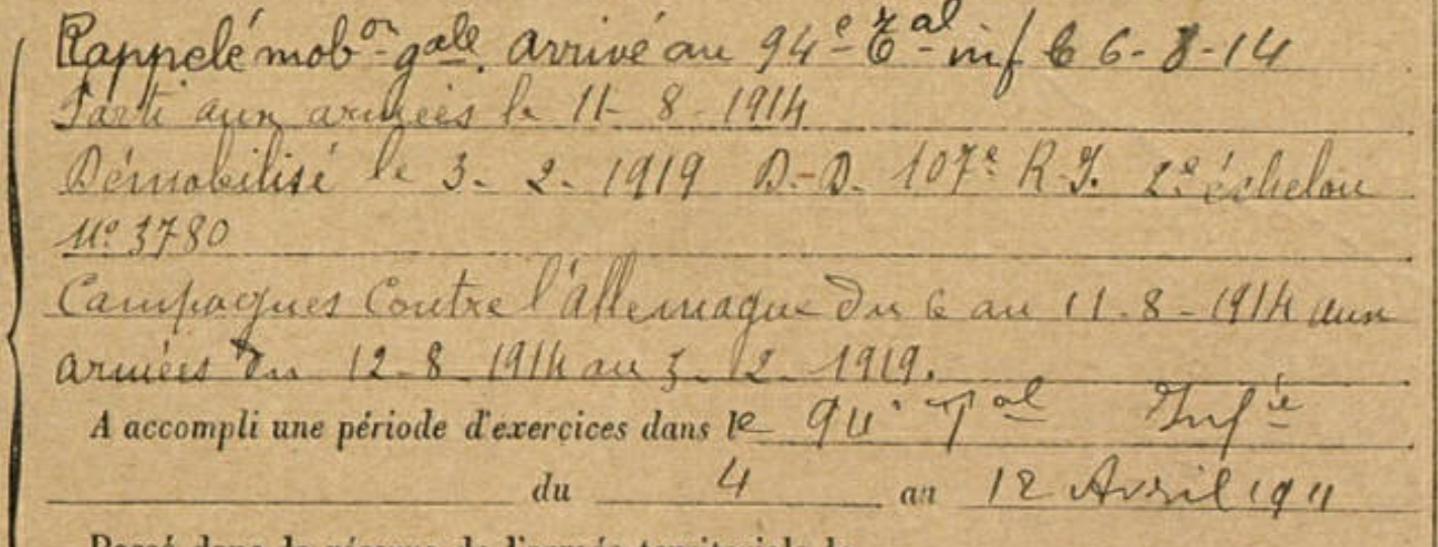 Rappelé mobon gale. arrivé au 94e Tal inf le 6-8-14
Parti aux armées le 11-8-1914
Démobilisé le 3-2-1919 D.-D. 107e R.I. 2e échelon
No 3780
Campagnes Contre l'Allemagne du 6 au 11-8-1914 aux
armées du 12-8-1914 au 3-2-1919.
A accompli une période d'exercices dans le 94e Tal Infie
du 4 au 12 Avril 1911
Passé dans la réserve de l'armée territoriale le